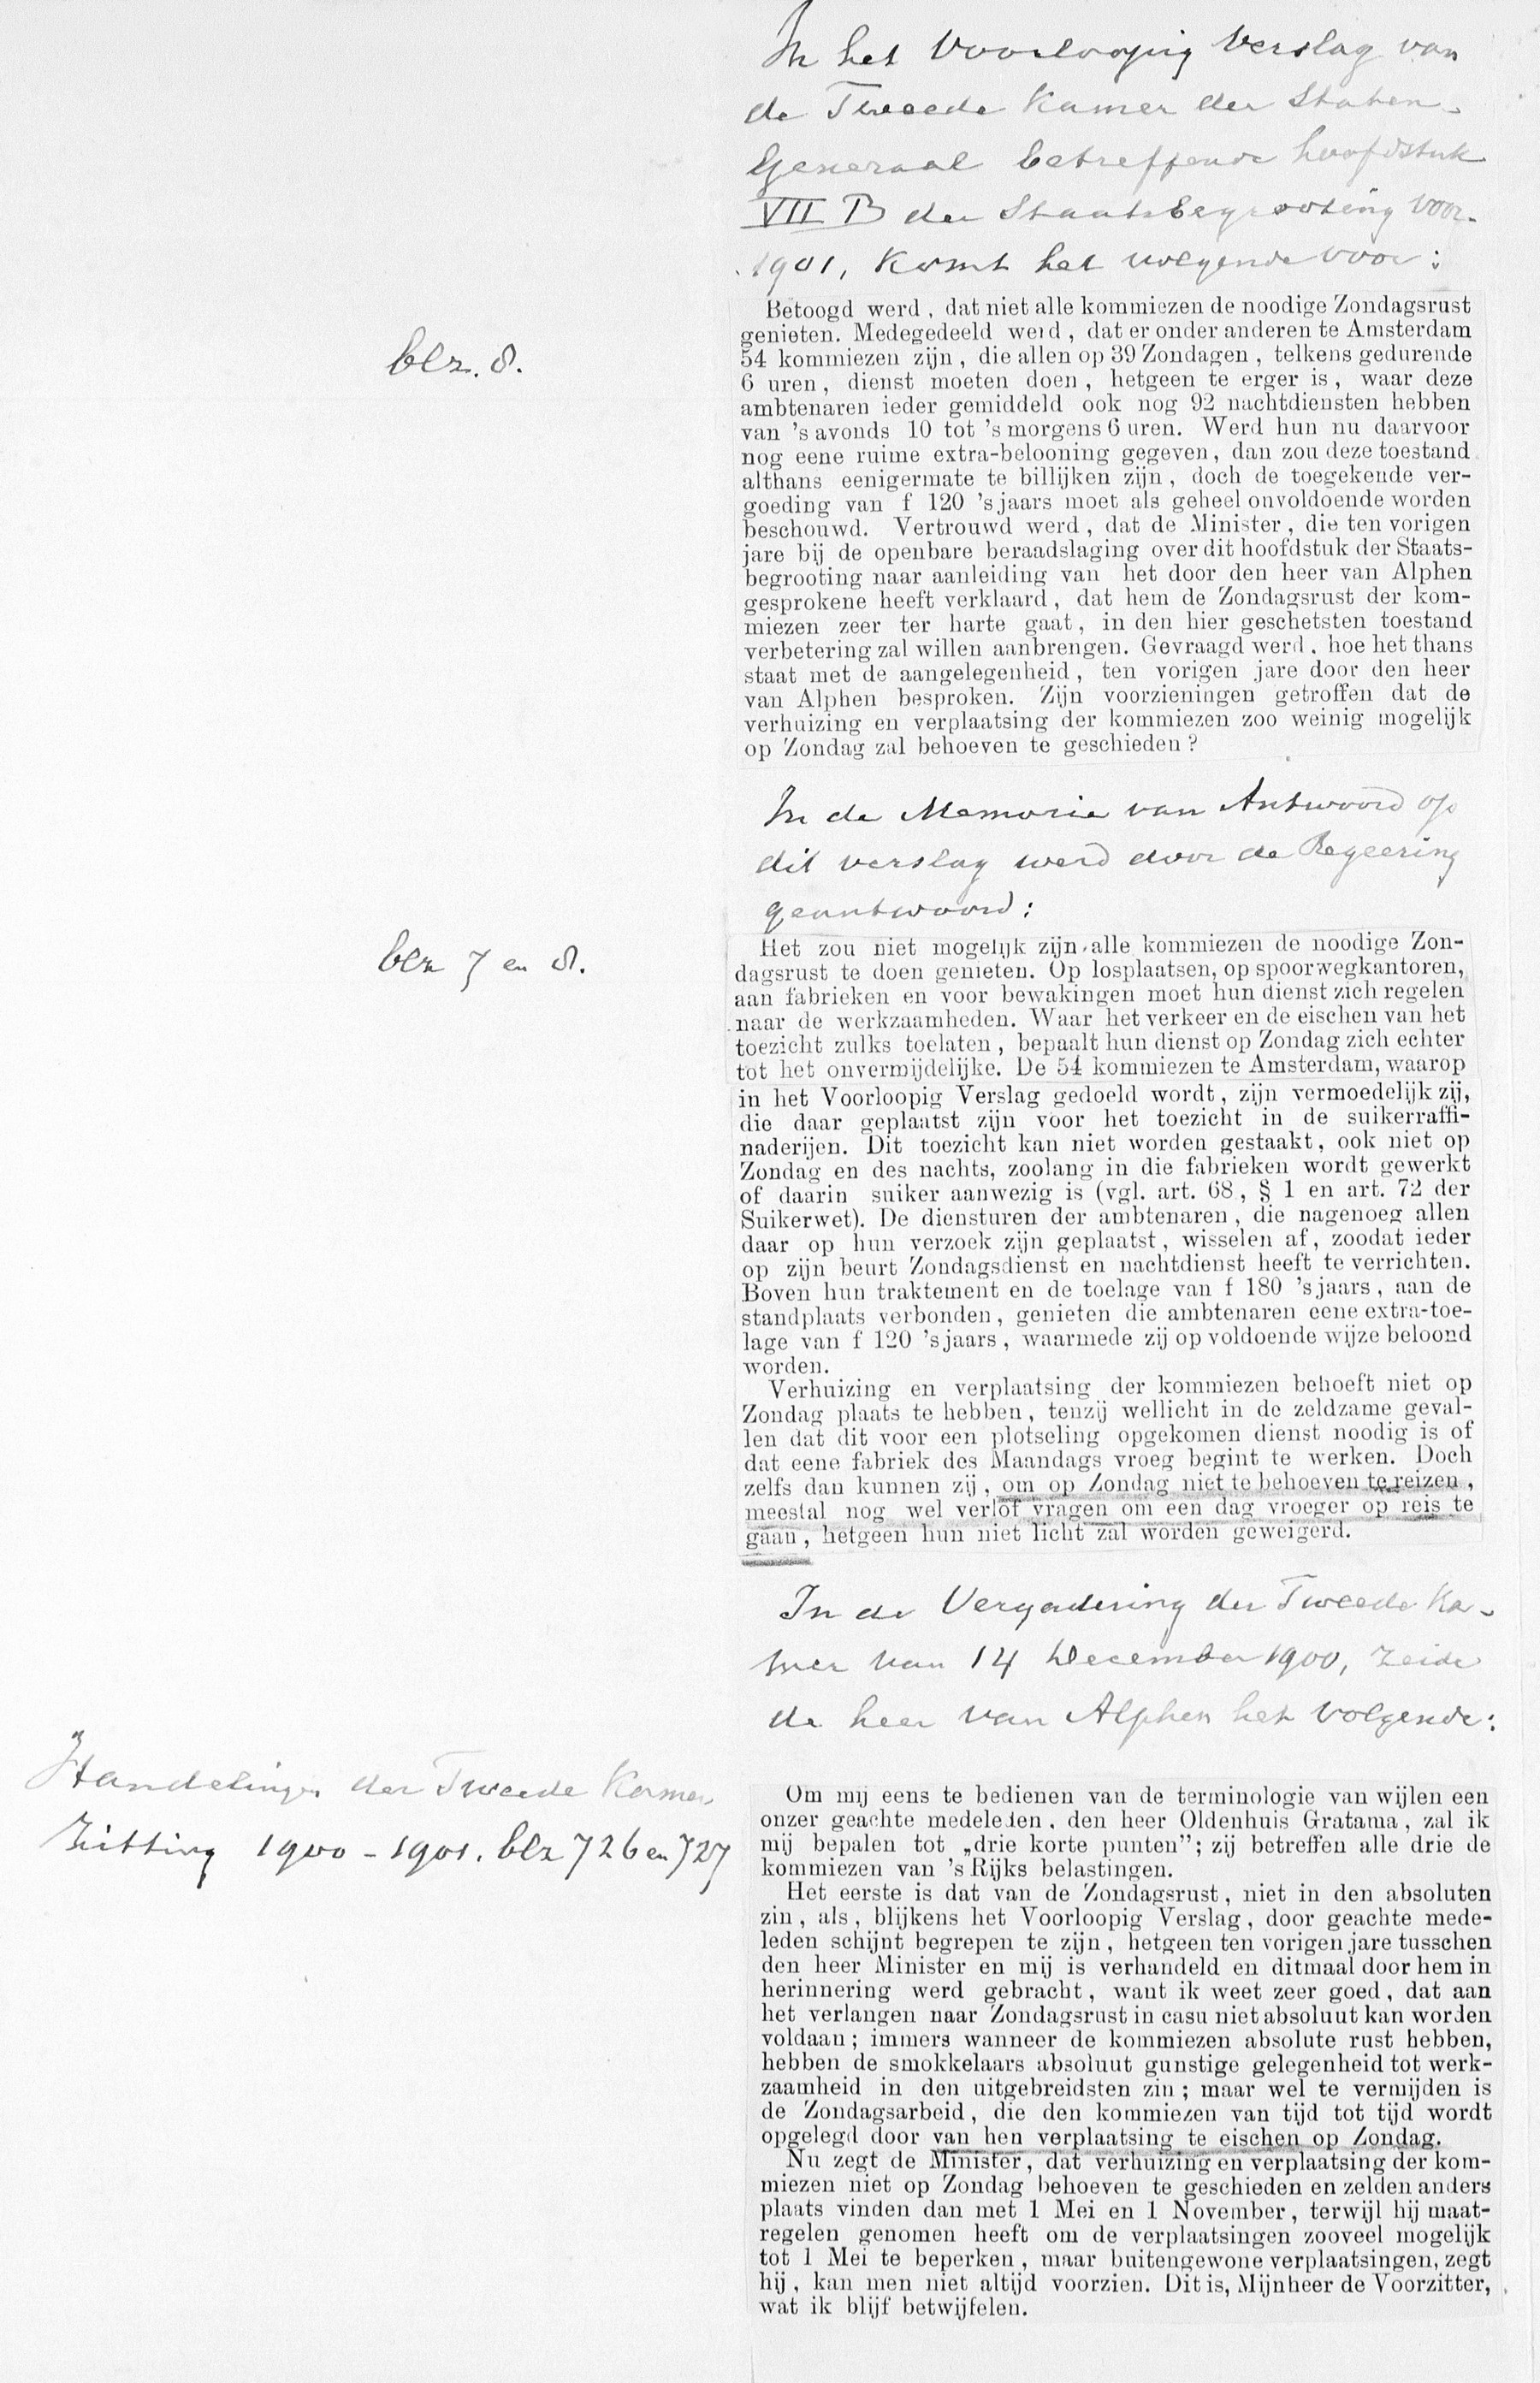 In het Voorloopig Verslag van
de Tweede Kamer der Staten-
Generaal betreffende hoofdstuk
VII B der Staatsbegrooting voor
1901, komt het volgende voor:
blz. 8.
Betoogd werd, dat niet alle kommiezen de noodige Zondagsrust
genieten. Medegedeeld werd, dat er onder anderen te Amsterdam
54 kommiezen zijn, die allen op 39 Zondagen, telkens gedurende
6 uren, dienst moeten doen, hetgeen te erger is, waar deze
ambtenaren ieder gemiddeld ook nog 92 nachtdiensten hebben
van 's avonds 10 tot 's morgens 6 uren. Werd hun nu daarvoor
nog eene ruime extra-belooning gegeven, dan zou deze toestand
althans eenigermate te billijken zijn, doch de toegekende ver-
goeding van f 120 's jaars moet als geheel onvoldoende worden
beschouwd. Vertrouwd werd, dat de Minister, die ten vorigen
jare bij de openbare beraadslaging over dit hoofdstuk der Staats-
begrooting naar aanleiding van het door den heer van Alphen
gesprokene heeft verklaard, dat hem de Zondagsrust der kom-
miezen zeer ter harte gaat, in den hier geschetsten toestand
verbetering zal willen aanbrengen. Gevraagd werd, hoe het thans
staat met de aangelegenheid, ten vorigen jare door den heer
van Alphen besproken. Zijn voorzieningen getroffen dat de
verhuizing en verplaatsing der kommiezen zoo weinig mogelijk
op Zondag zal behoeven te geschieden?
In de Memorie van Antwoord op
dit verslag werd door de Regeering
geantwoord:
blz 7 en 8.
Het zou niet mogelijk zijn alle kommiezen de noodige Zon-
dagsrust te doen genieten. Op losplaatsen, op spoorwegkantoren,
aan fabrieken en voor bewakingen moet hun dienst zich regelen
naar de werkzaamheden. Waar het verkeer en de eischen van het
toezicht zulks toelaten, bepaalt hun dienst op Zondag zich echter
tot het onvermijdelijke. De 54 kommiezen te Amsterdam, waarop
in het Voorloopig Verslag gedoeld wordt, zijn vermoedelijk zij,
die daar geplaatst zijn voor het toezicht in de suikerraffi-
naderijen. Dit toezicht kan niet worden gestaakt, ook niet op
Zondag en des nachts, zoolang in die fabrieken wordt gewerkt
of daarin suiker aanwezig is (vgl. art. 68, § 1 en art. 72 der
Suikerwet). De diensturen der ambtenaren, die nagenoeg allen
daar op hun verzoek zijn geplaatst, wisselen af, zoodat ieder
op zijn beurt Zondagsdienst en nachtdienst heeft te verrichten.
Boven hun traktement en de toelage van f 180 's jaars, aan de
standplaats verbonden, genieten die ambtenaren eene extra-toe-
lage van f 120 's jaars, waarmede zij op voldoende wijze beloond
worden.
Verhuizing en verplaatsing der kommiezen behoeft niet op
Zondag plaats te hebben, tenzij wellicht in de zeldzame geval-
len dat dit voor een plotseling opgekomen dienst noodig is of
dat eene fabriek des Maandags vroeg begint te werken. Doch
zelfs dan kunnen zij, om op Zondag niet te behoeven te reizen,
meestal nog wel verlof vragen om een dag vroeger op reis te
gaan, hetgeen hun niet licht zal worden geweigerd.
In de Vergadering der Tweede Ka-
mer van 14 December 1900, zeide
de heer van Alphen het volgende:
Handelingen der Tweede Kamer
Zitting 1900-1901. blz 726 en 727
Om mij eens te bedienen van de terminologie van wijlen een
onzer geachte medeleden, den heer Oldenhuis Gratama, zal ik
mij bepalen tot „drie korte punten”; zij betreffen alle drie de
kommiezen van 's Rijks belastingen.
Het eerste is dat van de Zondagsrust, niet in den absoluten
zin, als, blijkens het Voorloopig Verslag, door geachte mede-
leden schijnt begrepen te zijn, hetgeen ten vorigen jare tusschen
den heer Minister en mij is verhandeld en ditmaal door hem in
herinnering werd gebracht, want ik weet zeer goed, dat aan
het verlangen naar Zondagsrust in casu niet absoluut kan worden
voldaan; immers wanneer de kommiezen absolute rust hebben,
hebben de smokkelaars absoluut gunstige gelegenheid tot werk-
zaamheid in den uitgebreidsten zin; maar wel te vermijden is
de Zondagsarbeid, die den kommiezen van tijd tot tijd wordt
opgelegd door van hen verplaatsing te eischen op Zondag.
Nu zegt de Minister, dat verhuizing en verplaatsing der kom-
miezen niet op Zondag behoeven te geschieden en zelden anders
plaats vinden dan met 1 Mei en 1 November, terwijl hij maat-
regelen genomen heeft om de verplaatsingen zooveel mogelijk
tot 1 Mei te beperken, maar buitengewone verplaatsingen, zegt
hij, kan men niet altijd voorzien. Dit is, Mijnheer de Voorzitter,
wat ik blijf betwijfelen.